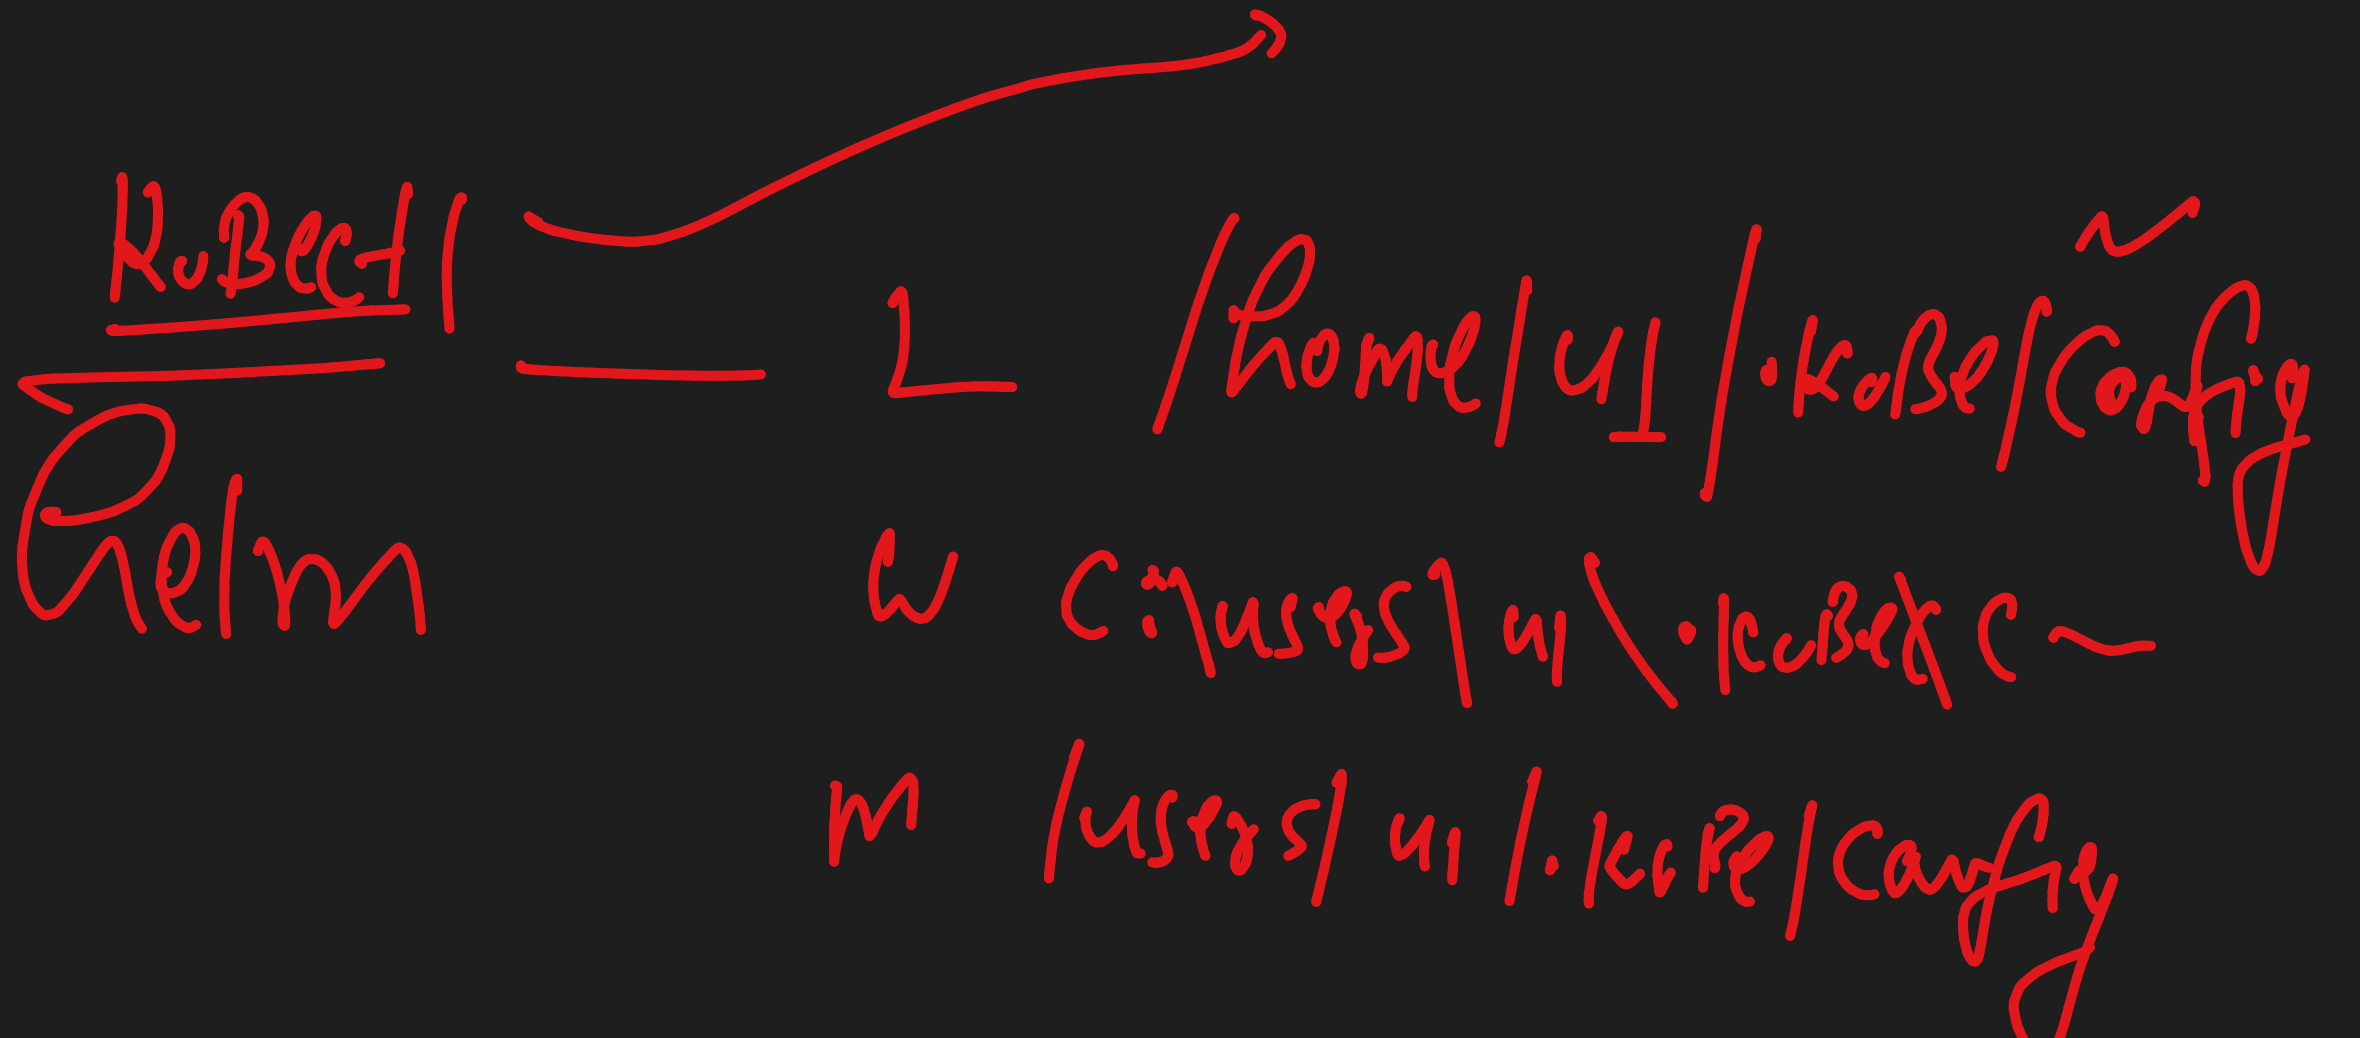 Kubectl
L /home/u1/.kube/config
Helm
W C:\users\u1\.kube\c~
M /users/u1/.kube/config